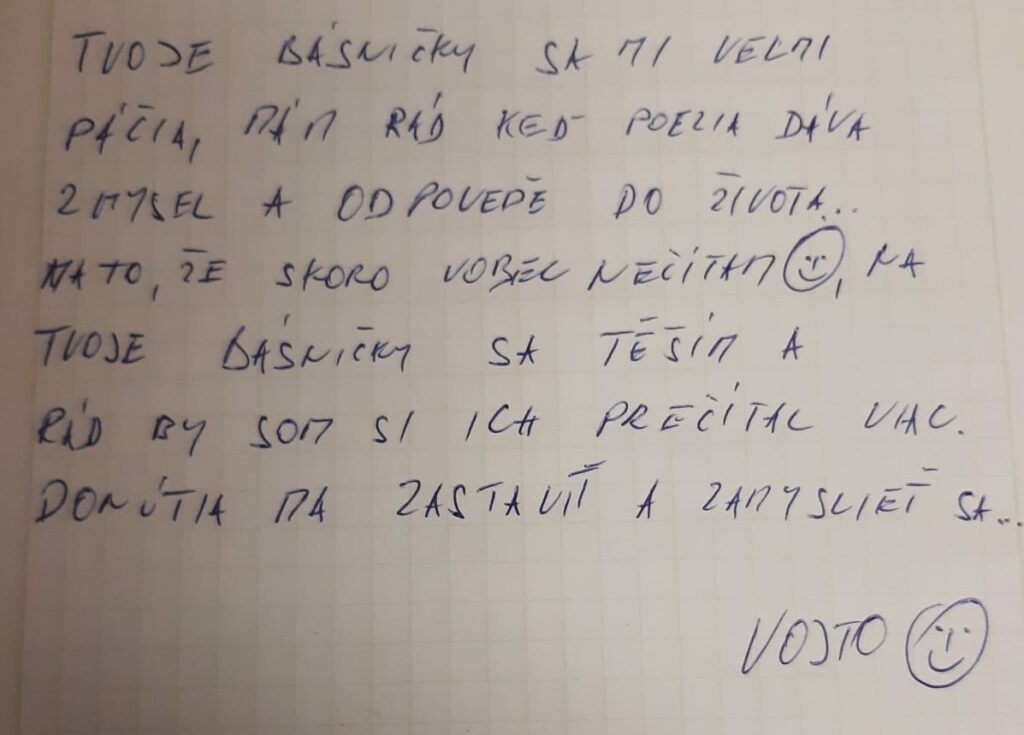 TVOJE BÁSNIČKY SA MI VEĽMI
PÁČIA, MÁM RÁD KEĎ POEZIA DÁVA
ZMYSEL A ODPOVEDE DO ŽIVOTA...
NA TO, ŽE SKORO VOBEC NEČÍTAM☺, NA
TVOJE BÁSNIČKY SA TĚŠÍM A
RÁD BY SOM SI ICH PREČÍTAL VIAC.
DONÚTIA MA ZASTAVIŤ A ZAMYSLIEŤ SA...
VOJTO ☺